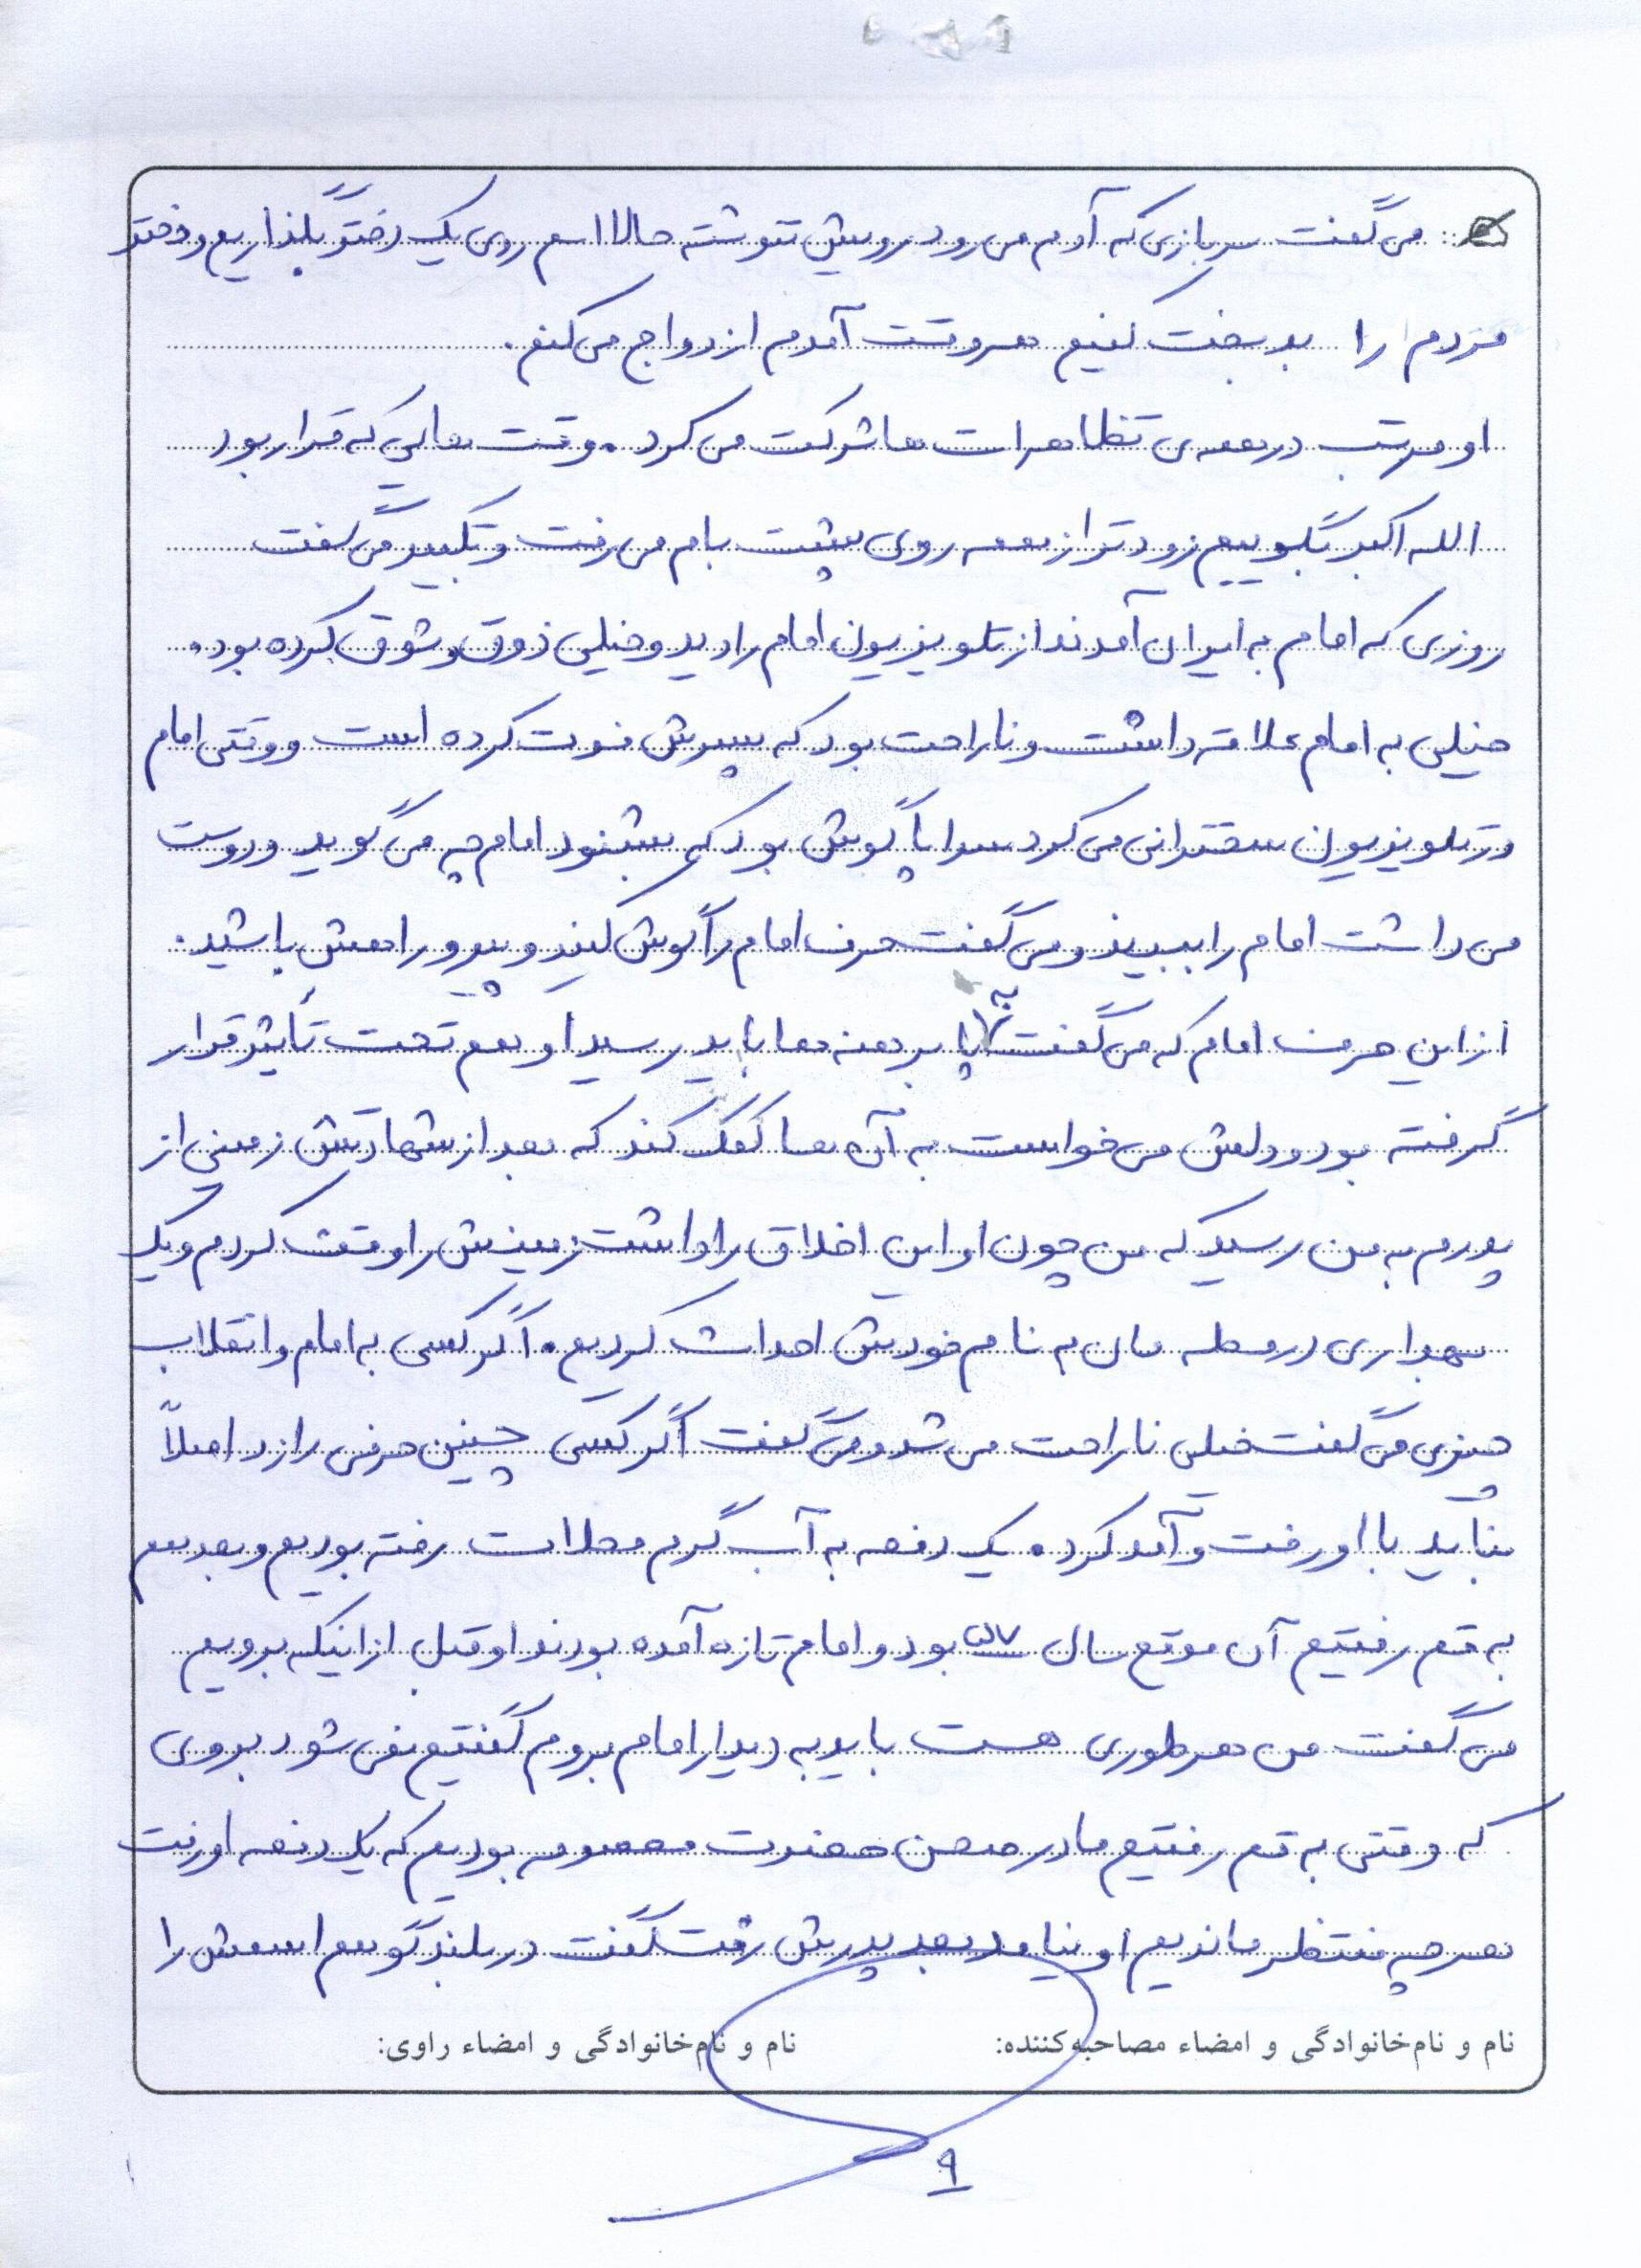 می گفت سربازی که آدم می رود رویش ننوشته حالا اسم روی یک دختر بگذاریم و دختر
مردم را بدبخت کنیم هر وقت آمدم ازدواج می کنم.
او مرتب در همه ی تظاهرات ها شرکت می کرد. وقت هایی که قرار بود
الله اکبر بگوییم زودتر از همه روی پشت بام می رفت و تکبیر می گفت
روزی که امام به ایران آمدند از تلویزیون امام را دید و خیلی ذوق و شوق کرده بود.
خیلی به امام علاقه داشت و ناراحت بود که پسرش فوت کرده است و وقتی امام
در تلویزیون سخنرانی می کرد سراپا گوش بود که بشنود امام چه می گوید و دوست
می داشت امام را ببیند و می گفت حرف امام را گوش کنید و پیرو راهش باشید.
از این حرف امام که می گفت به پا برهنه ها باید رسید او هم تحت تأثیر قرار
گرفته بود و دلش می خواست به آن ها کمک کند که بعد از شهادتش زمینی از
پدرم به من رسید که من چون او این اخلاق را داشت زمینش را وقف کردم و یک
بهداری در محله مان به نام خودش احداث کردیم. اگر کسی به امام و انقلاب
چیزی می گفت خیلی ناراحت می شد و می گفت اگر کسی چنین حرفی را زد اصلاً
نباید با او رفت و آمد کرد. یک دفعه به آب گرم محلات رفته بودیم و بعد هم
به قم رفتیم آن موقع سال ۵۷ بود و امام تازه آمده بودند او قبل از اینکه برویم
می گفت من هر طوری هست باید به دیدار امام بروم گفتیم نمی شود بروی
که وقتی به قم رفتیم ما در صحن حضرت معصومه بودیم که یک دفعه او رفت
هر چه منتظر ماندیم او نیامد بعد پدرش رفت گفت در بلندگو هم اسمش را
نام و نام‌خانوادگی و امضاء مصاحبه‌کننده: نام و نام‌خانوادگی و امضاء راوی:
۹